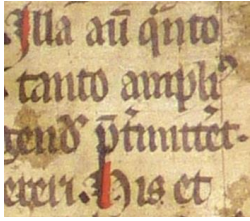 Illa aū qͣnto
tanto ampliꝰ
gendꝰ p̄t̾mittet·
ereri. His et